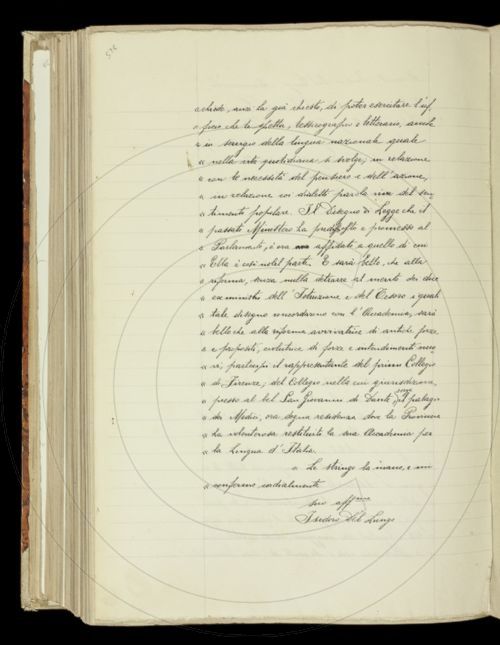 « chiede, anzi ha già chiesto, di poter esercitare l'uf
« ficio che le spetta, lessicografico e letterario, anche
« in servigio della lingua nazionale quale
« nella vita quotidiana si svolge, in relazione
« con le necessità del pensiero e dell'azione,
« in relazione coi dialetti parola viva del sen
« timento popolare. Il Disegno di Legge che il
« passato Ministero ha predisposto e promesso al
« Parlamento, è ora affidato a quello di cui
« Ella è così nobil parte. E sarà bello, che alla
« riforma, senza nulla detrarre al merito dei due
« ex ministri dell'Istruzione e del Tesoro i quali
« tale disegno concordarono con l'Accademia, sarà
« bello che alla riforma avvivatrice di antiche forze
« e propositi, eccitatrice di forze e intendimenti nuo
« vi, partecipi il rappresentante del primo Collegio
« di Firenze; del Collegio nella cui giurisdizione,
« presso al bel San Giovanni di Dante, è il palagio
« dei Medici, ora degna residenza dove la Provincia
« ha volenterosa restituita la sua Accademia per
« la Lingua d'Italia.
« Le stringo la mano, e mi
« confermo cordialmente
suo affmo
Isidoro Del Lungo